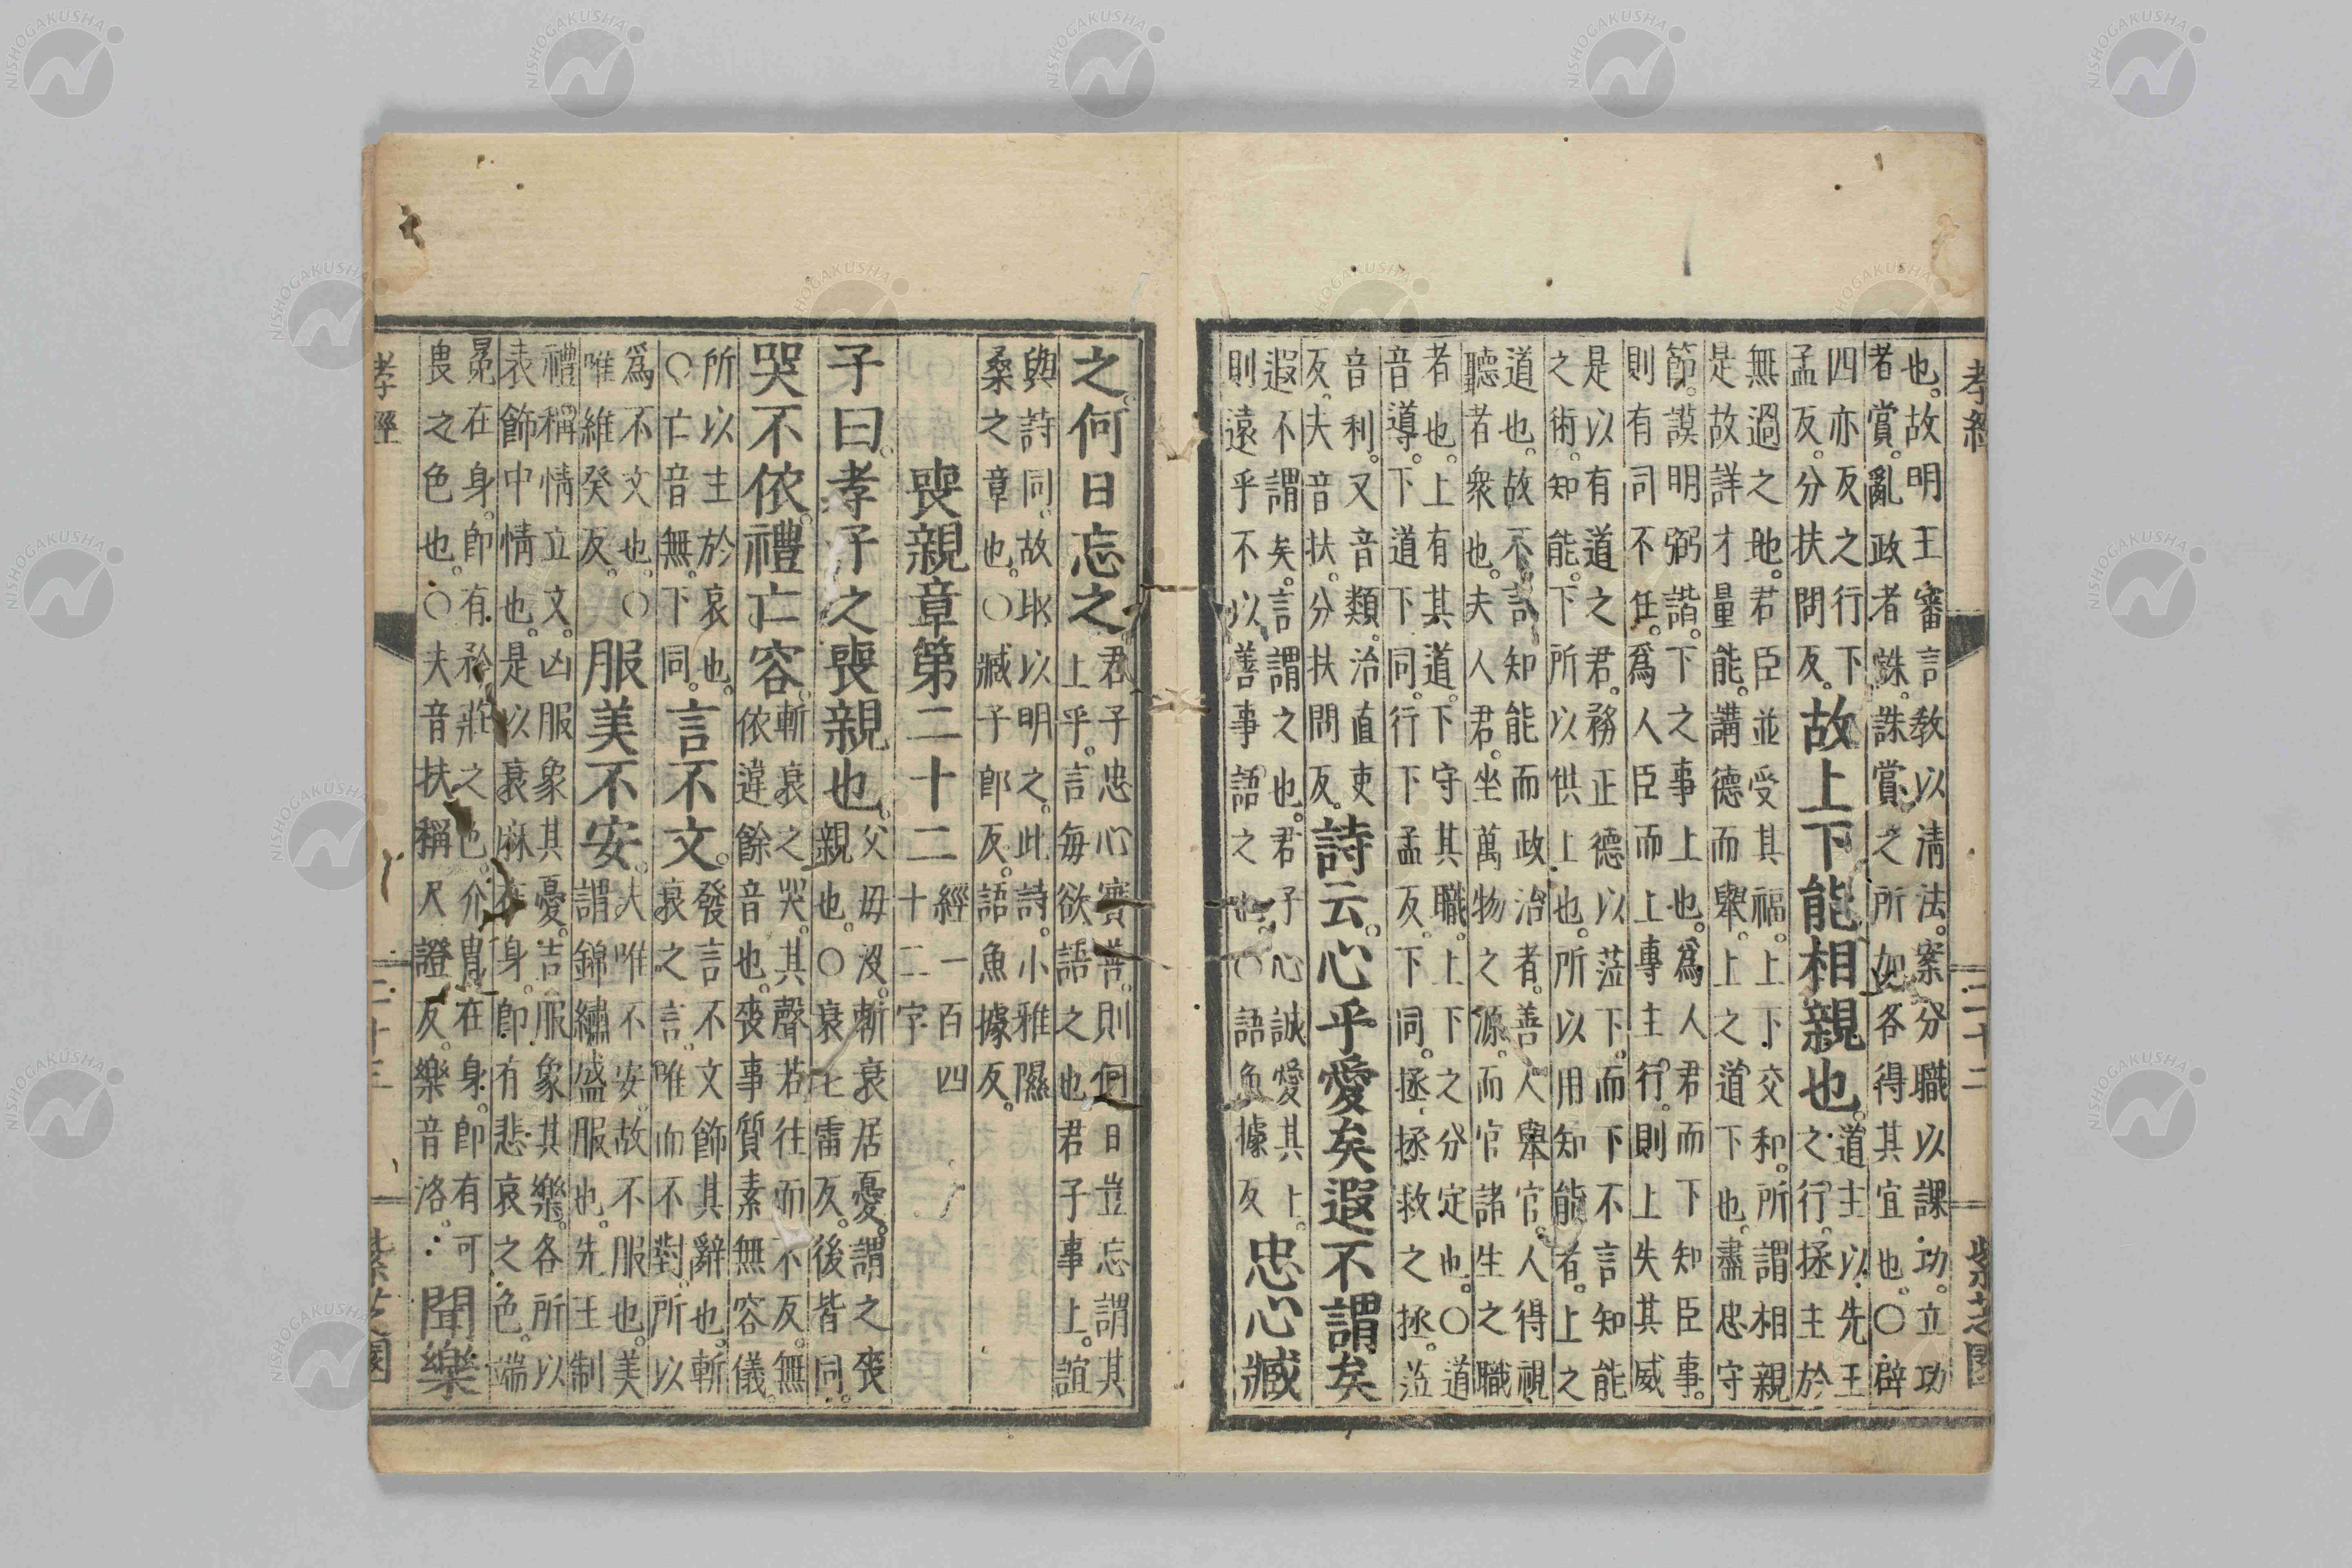 孝經 二十二 紫芝園
也。故明王審言教以清法。案分職以課功。立功
者賞。亂政者誅。誅賞之所加各得其宜也。○辟
四亦反之行下
孟反。分扶問反。
故上下能相親也。
道主以先王
之行。拯主於
無過之地。君臣並受其福。上下交和。所謂相親
是故詳才量能。講德而舉。上之道下也。盡忠守
節。謨明弼諧。下之事上也。爲人君而下知臣事。
則有司不任。爲人臣而上專主行。則上失其威
是以有道之君。務正德以莅下。而下不言知能
之術。知能。下所以供上也。所以用知能者。上之
道也。故不言知能而政治者。善人舉官。人得視
聽者衆也。夫人君。坐萬物之源。而官諸生之職
者也。上有其道。下守其職。上下之分定也。○道
音導。下道下同。行下孟反。下同。拯拯救之拯。莅
音利。又音類。治直吏
反。夫音扶。分扶問反。
詩云。心乎愛矣遐不謂矣
遐不謂矣。言謂之也。君子心誠愛其上。
則遠乎不以善事語之也。○語魚據反
忠心臧
之。何日忘之。
君子忠心實善。則何日豈忘謂其
上乎。言每欲語之也君子事上。誼
與詩同。故取以明之。此詩。小雅隰
桑之章也。○臧子郎反。語魚據反。
喪親章第二十二
經一百四
十二字
子曰。孝子之喪親也。
父母没。斬衰居憂。謂之喪
親也。○衰七雷反。後皆同。
哭不依。禮亡容。
斬衰之哭。其聲若往而不反。無
依違餘音也。喪事質素無容儀。
所以主於哀也。
○亡音無。下同。
言不文。
發言不文飾其辭也。斬
衰之言。唯而不對。所以
爲不文也。○
唯維癸反。
服美不安。
夫唯不安。故不服也。美
謂錦繡盛服也。先王制
禮稱情立文。凶服象其憂。吉服象其樂。各所以
表飾中情也。是以衰麻在身。即有悲哀之色。端
冕在身。即有矜莊之色。介冑在身。即有可
畏之色也。○夫音扶。稱尺證反。樂音洛。
聞樂
孝經 二十三 紫芝園
NISHOGAKUSHA